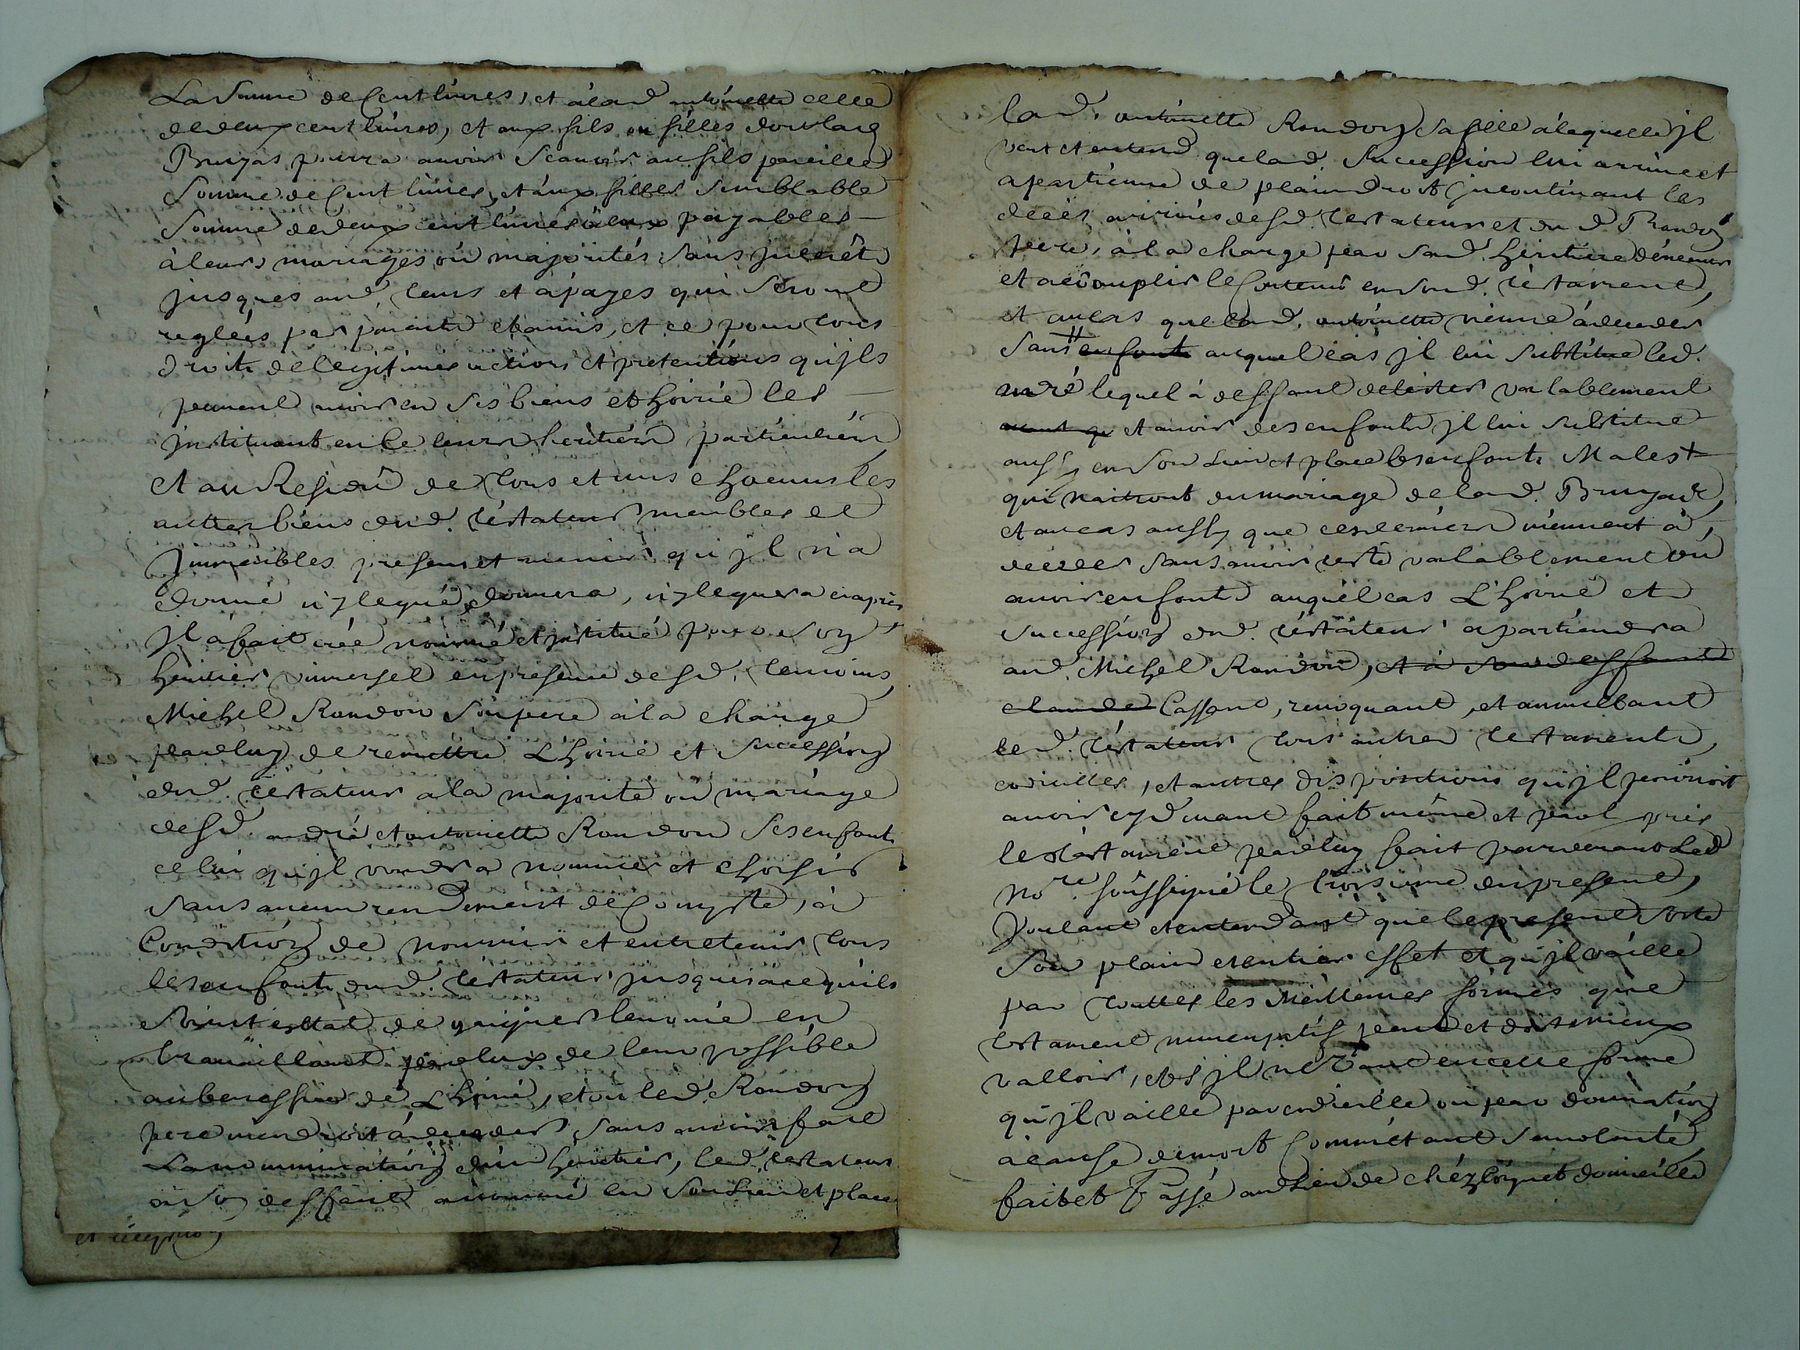 La somme de cent livres, et a lad antoinette celle
de deux cent livres, et aux fils ou filles dont lad
Bruyas pourra avoir scavoir au fils pareille
somme de cent livres, et aux filles semblable
somme de deux cent livres payables
à leurs mariages ou majorités sans jnterêt
jusques aud. tems et a payes qui seront
reglées par parents et amis, et ce pour tous
droits de legitimes actions et pretentions qu'jls
peuvent avoir en ses biens et hoirie les
jnstituant en ce leurs heritiers particuliers
et au Residu de tous et uns chacuns les
autres biens dud. testateur meubles et
jmmeubles presens et avenir qu'jl n'a
donné n'y legué, donnera, n'y leguera ci apres
jl a fait créé nommé et jnstitué pour son
heritier universel en presence desd. temoins,
Michel Rondon son pere a la charge
par luy de remettre L'hoirie et succession
dud. testateur a la majorité ou mariage
desd. andré et antoinette Rondon ses enfants
celui qu'jl voudra nommer et choisir
sans aucun rendement de Compte, à
Condition de nourrir et entretenir tous
les enfants dud. testateur jusques a ce qu'ils
soint en état de gaigner leur vie en
travaillant de leur possible
au benessice de L'hoirie, et ou led. Rondon
pere viendroit à deceder sans avoir fait
La nommination d'un heritier, led. testateur
a son deffaut a nommé en son Lieu et place
lad. antoinette Rondon sa fille a laquelle jl
veut et entend que lad. succession lui arrive et
apartienne de plain droit jncontinant les
décès arrivés desd. testateur et du d. Rondon
pere, à la charge par sad. heritiere
et accomplir le Contenu en sond. testament,
et au cas que lad. antoinette vienne à deceder
sans enfants auquel cas jl lui substitue led.
andré lequel à deffaut de tester vallablement
et avoir des enfants jl lui substitue
aussy en son Lieu et place les enfants Males
qui naitront du mariage de lad. Bruyas,
et au cas aussy que ces derniers viennent à
deceder sans avoir testé vallablement ou
avoir enfants auquel cas L'hoirie et
succession dud. testateur apartiendra
aud. Michel Rondon, et à son deffaut
claude Cassant, revoquant, et annullant
led. testateur tous autres testaments,
codicilles, et autres dispositions qu'jl pourroit
avoir cy devant fait même et par exprès
le testament par luy fait par devant Led
No.re soussigné le troisieme du present,
Voulant et entendant que le present sorte
son plain et entier effet et qu'jl vaille
par touttes les Meilleures formes que
testament nuncupatif peut et doit mieux
valloir, et s'jl ne vaut en cette forme
qu'jl vaille par codicille ou par donnation
a cause de mort Commétant sa volonté
fait et Passé aud Lieu de chez domicille